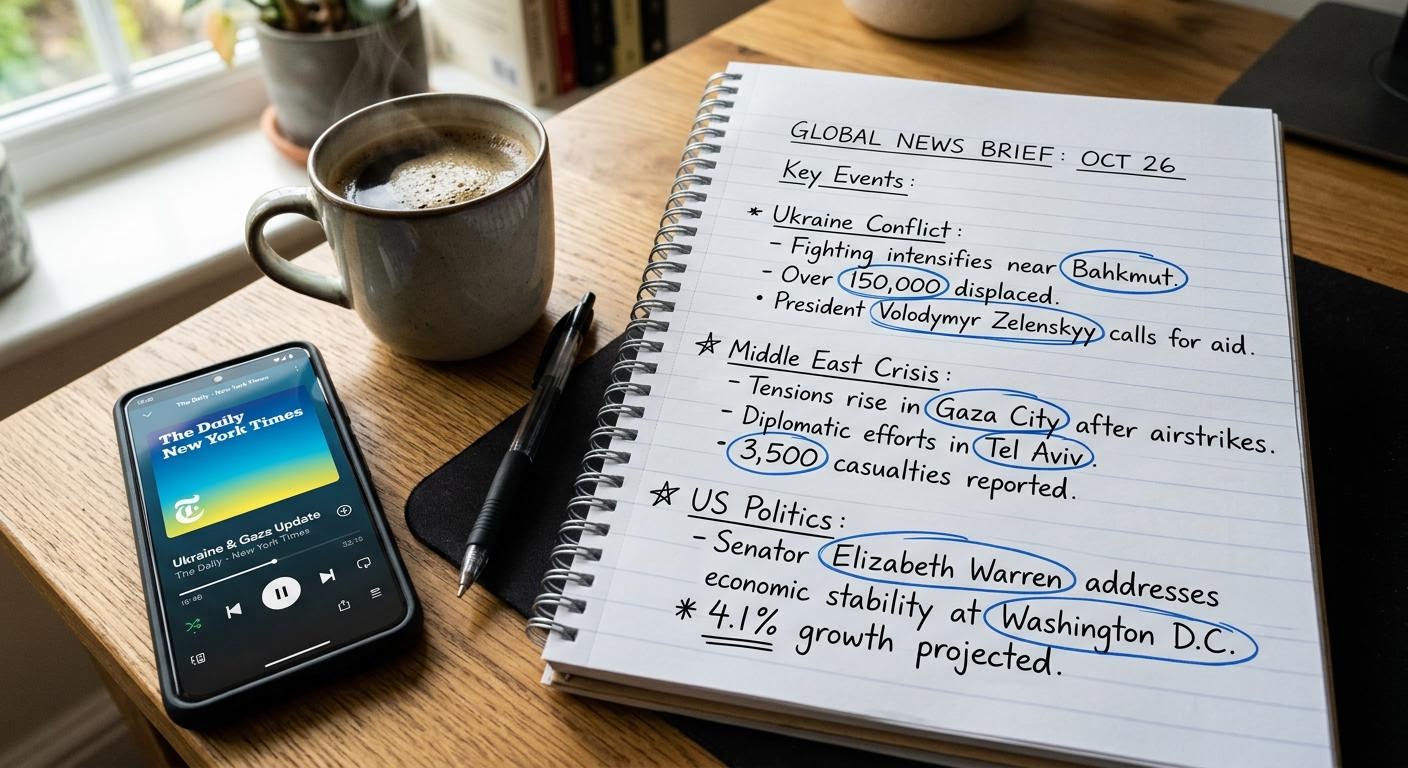 The Daily - New York Times
The Daily
New York Times
Ukraine & Gazs Update
The Daily - New York Times
GLOBAL NEWS BRIEF: OCT 26
Key Events:
* Ukraine Conflict:
- Fighting intensifies near Bahkmut.
- Over 150,000 displaced.
• President Volodymyr Zelenskyy calls for aid.
☆ Middle East Crisis:
- Tensions rise in Gaza City after airstrikes.
- Diplomatic efforts in Tel Aviv.
- 3,500 casualties reported.
☆ US Politics:
- Senator Elizabeth Warren addresses
economic stability at Washington D.C.
* 4.1% growth projected.